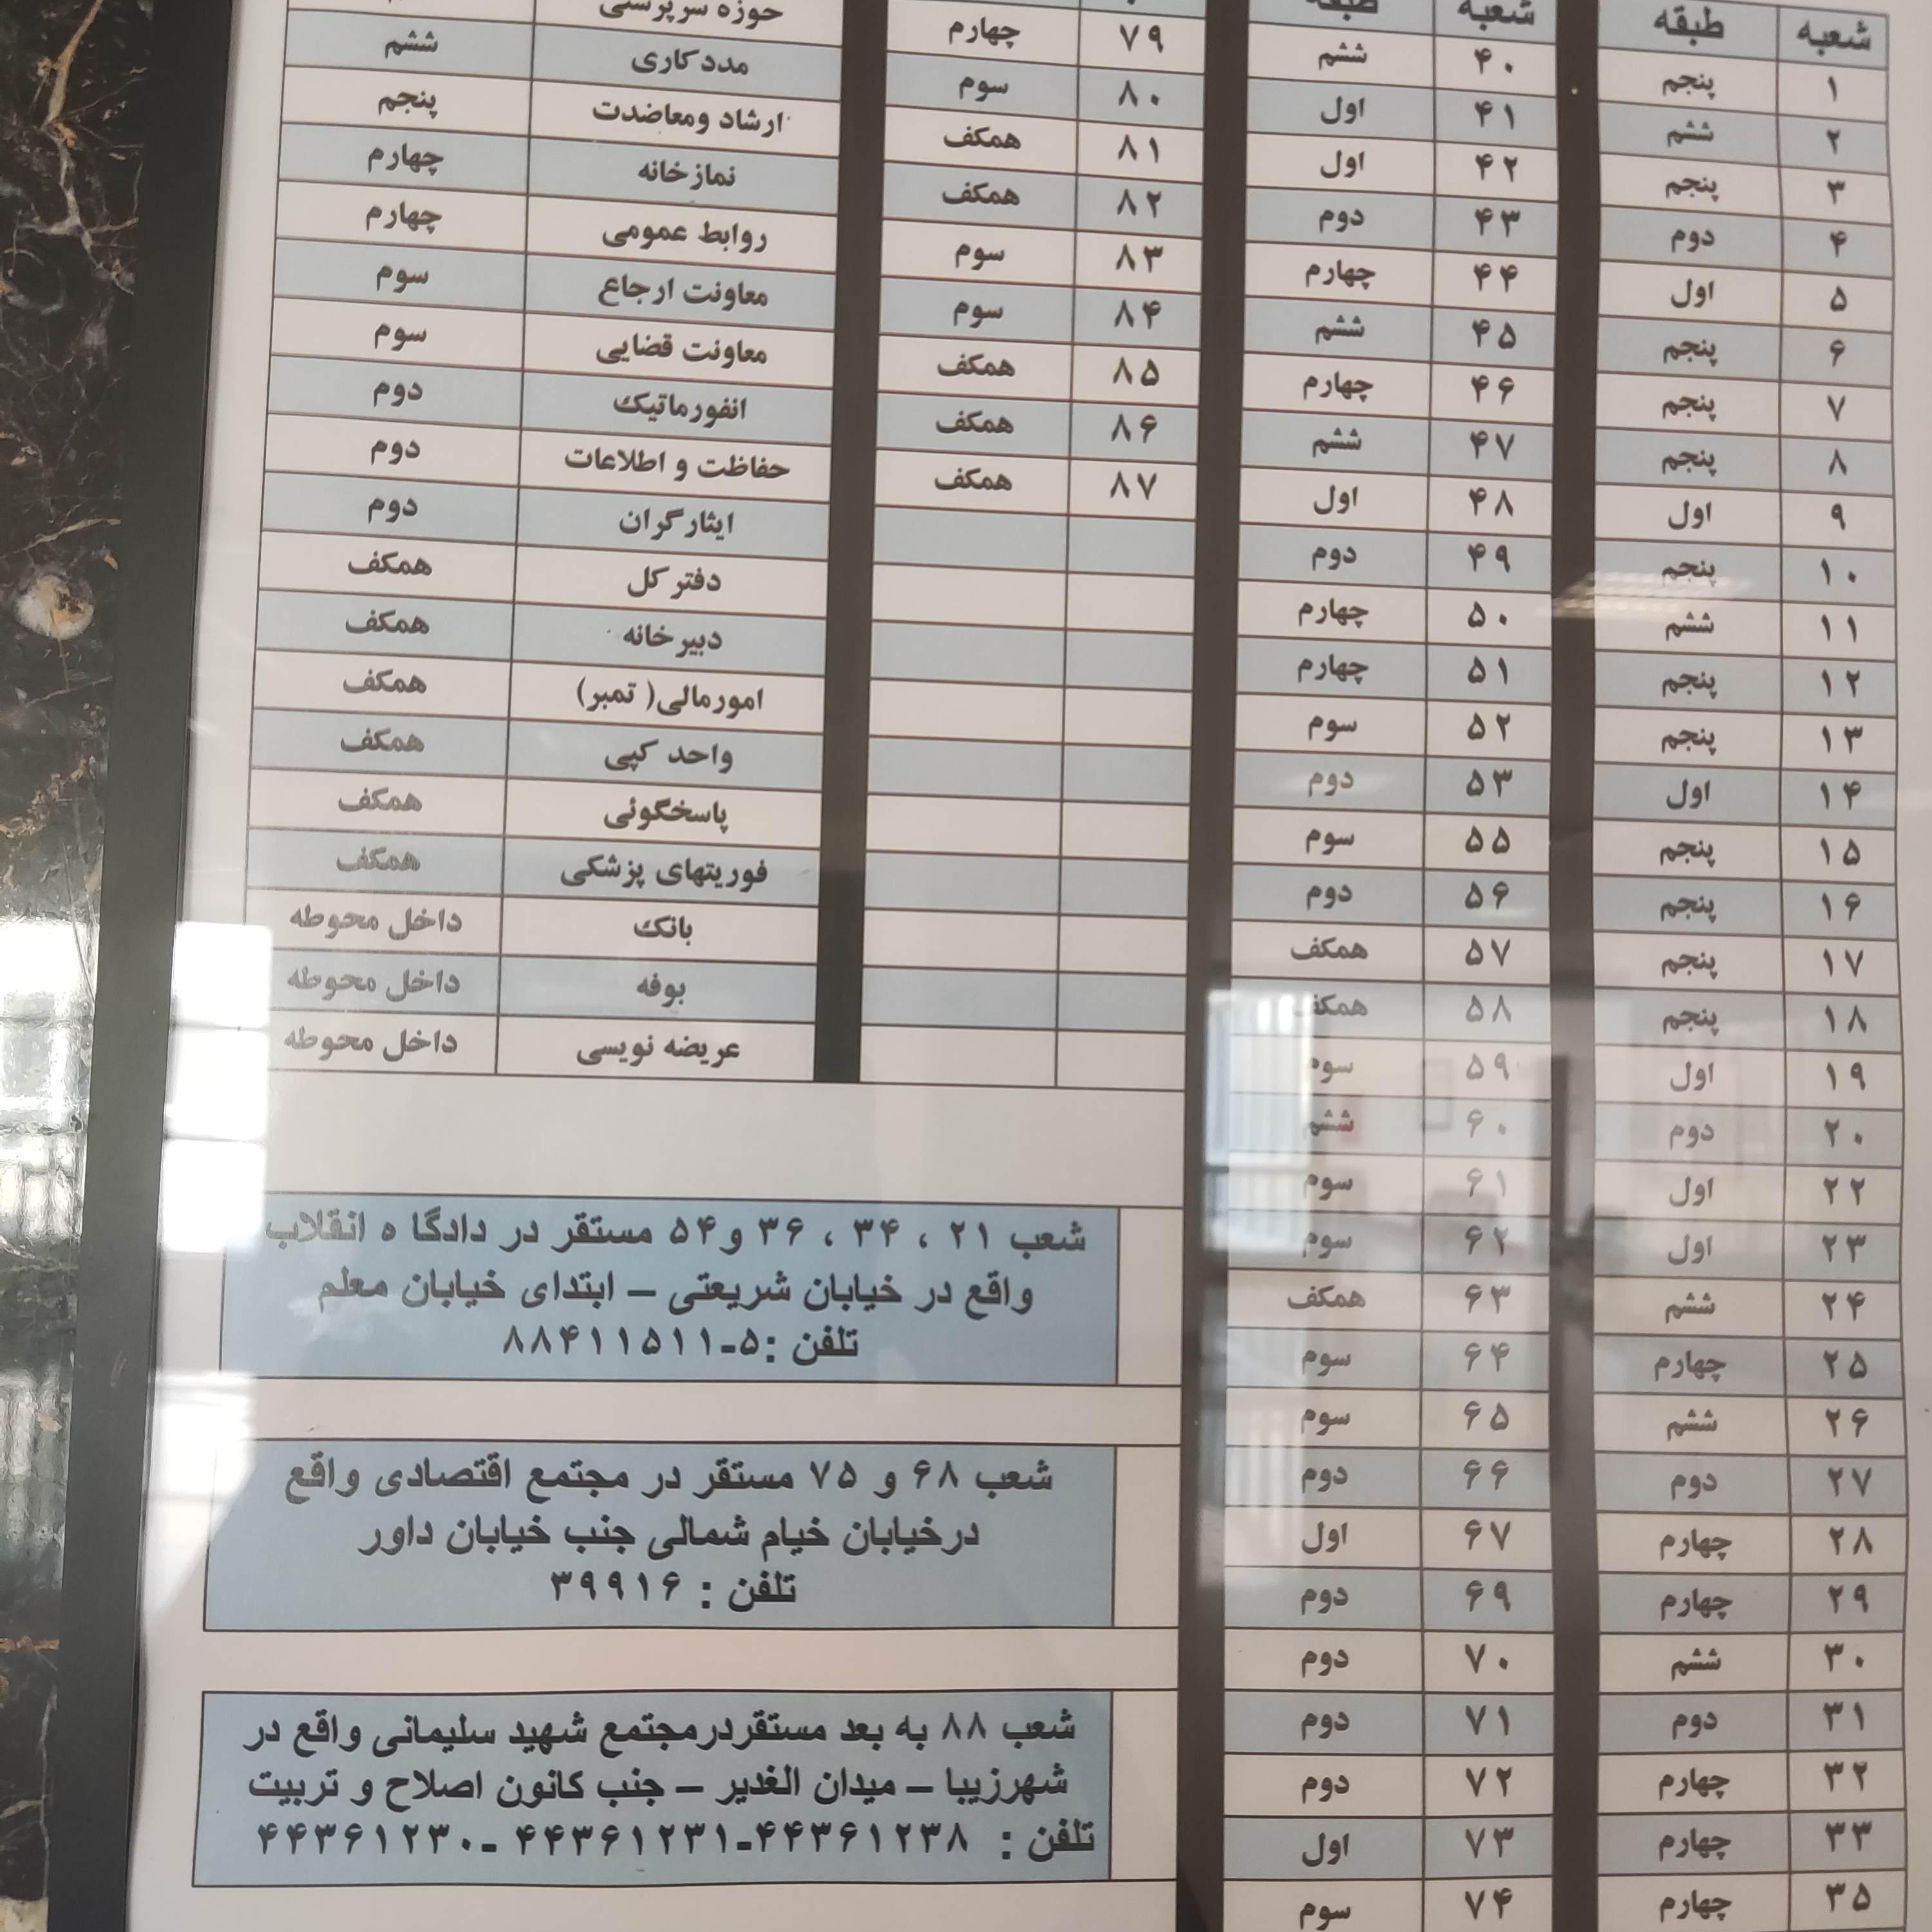 شعبه طبقه
۱ پنجم
۲ ششم
۳ پنجم
۴ دوم
۵ اول
۶ پنجم
۷ پنجم
۸ پنجم
۹ اول
۱۰ پنجم
۱۱ ششم
۱۲ پنجم
۱۳ پنجم
۱۴ اول
۱۵ پنجم
۱۶ پنجم
۱۷ پنجم
۱۸ پنجم
۱۹ اول
۲۰ دوم
۲۲ اول
۲۳ اول
۲۴ ششم
۲۵ چهارم
۲۶ ششم
۲۷ دوم
۲۸ چهارم
۲۹ چهارم
۳۰ ششم
۳۱ دوم
۳۲ چهارم
۳۳ چهارم
۳۵ چهارم
شعبه طبقه
۴۰ ششم
۴۱ اول
۴۲ اول
۴۳ دوم
۴۴ چهارم
۴۵ ششم
۴۶ چهارم
۴۷ ششم
۴۸ اول
۴۹ دوم
۵۰ چهارم
۵۱ چهارم
۵۲ سوم
۵۳ دوم
۵۵ سوم
۵۶ دوم
۵۷ همکف
۵۸ همکف
۵۹ سوم
۶۰ ششم
۶۱ سوم
۶۲ سوم
۶۳ همکف
۶۴ سوم
۶۵ سوم
۶۶ دوم
۶۷ اول
۶۹ دوم
۷۰ دوم
۷۱ دوم
۷۲ دوم
۷۳ اول
۷۴ سوم
۷۹ چهارم
۸۰ سوم
۸۱ همکف
۸۲ همکف
۸۳ سوم
۸۴ سوم
۸۵ همکف
۸۶ همکف
۸۷ همکف
حوزه سرپرستی
مددکاری ششم
ارشاد ومعاضدت پنجم
نمازخانه چهارم
روابط عمومی چهارم
معاونت ارجاع سوم
معاونت قضایی سوم
انفورماتیک دوم
حفاظت و اطلاعات دوم
ایثارگران دوم
دفترکل همکف
دبیرخانه همکف
امورمالی( تمبر) همکف
واحد کپی همکف
پاسخگوئی همکف
فوریتهای پزشکی همکف
بانک داخل محوطه
بوفه داخل محوطه
عریضه نویسی داخل محوطه
شعب ۲۱ ، ۳۴ ، ۳۶ و۵۴ مستقر در دادگا ه انقلاب
واقع در خیابان شریعتی – ابتدای خیابان معلم
تلفن :۵-۸۸۴۱۱۵۱۱
شعب ۶۸ و ۷۵ مستقر در مجتمع اقتصادی واقع
درخیابان خیام شمالی جنب خیابان داور
تلفن : ۳۹۹۱۶
شعب ۸۸ به بعد مستقردرمجتمع شهید سلیمانی واقع در
شهرزیبا – میدان الغدیر – جنب کانون اصلاح و تربیت
تلفن : ۴۴۳۶۱۲۳۸-۴۴۳۶۱۲۳۱ -۴۴۳۶۱۲۳۰